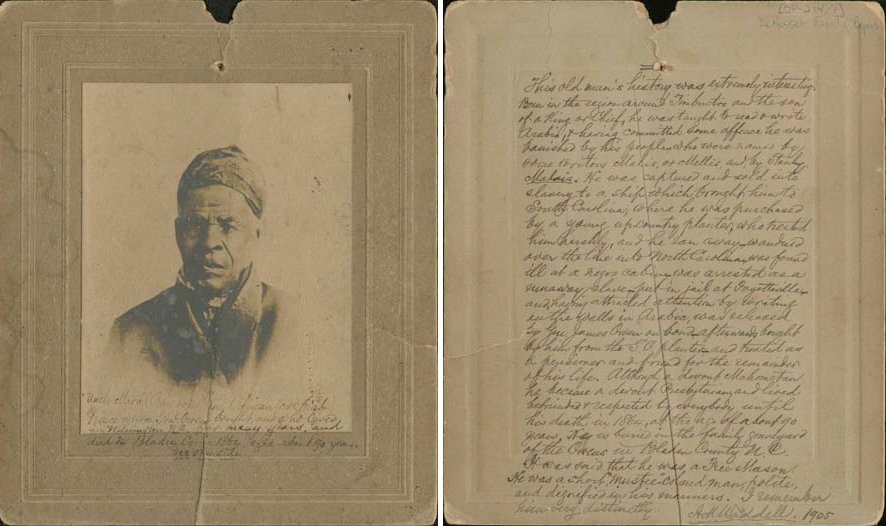 "Uncle
Prince whom Gen. Owen bought and who lived
in Wilmington N.C. for many years, and
died in Bladen Co. in 1864, aged about 90 years.
See other side
This old man's history was extremely interesting.
Born in the region around Timbuctoo and the son
of a King or Chief, he was taught to read & write
Arabic, & having committed some offence he was
banished by his people who were named by
some writers Malis, or Mellis, and by Stanley
Malais. He was captured and sold into
slavery to a ship which brought him to
South Carolina, where he was purchased
by a young up country planter, who treated
him harshly, and he ran away, wandered
over the line into North Carolina, was found
ill at a negro cabin, was arrested as a
runaway slave, put in jail at Fayetteville
and having attracted attention by writing
on the walls in Arabic, was released
by Gen. James Owen on bond, afterwards bought
by him from the S.C. planter and treated as
a pensioner and friend for the remainder
of his life. Although a devout Mahometan
he became a devout Presbyterian, and lived
befriended & respected by everybody until
his death in 1864, at the age of about 90
years, He is buried in the family graveyard
of the Owens in Bladen County N.C.
It was said that he was a Free Mason.
He was a short "mustee" colored man, polite,
and dignified in his manners. I remember
him very distinctly
A.M. Waddell. 1905